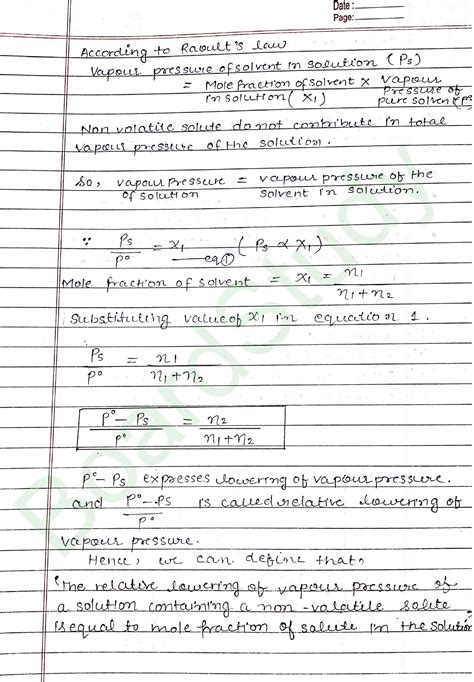 Date :
Page:
According to Raoult's law
Vapour pressure of solvent in solution (Ps)
= Mole fraction of solvent x vapour
in solution (x₁) pressure of
pure solvent (P°
Non volatile solute do not contribute in total
vapour pressure of the solution.
So, vapour pressure = vapour pressure of the
of solution solvent in solution.
∵ Ps/P° = x₁ (Ps ∝ x₁)
eq①
Mole fraction of solvent = x₁ = n₁/n₁+n₂
Substituting value of x₁ in equation 1.
Ps/P° = n₁/n₁+n₂
P°-Ps/P° = n₂/n₁+n₂
P°-Ps expresses lowering of vapour pressure.
and P°-Ps/P° is called relative lowering of
vapour pressure.
Hence, we can define that,
"The relative lowering of vapour pressure of
a solution containing a non-volatile solute
is equal to mole fraction of solute in the solution
BoardStudy